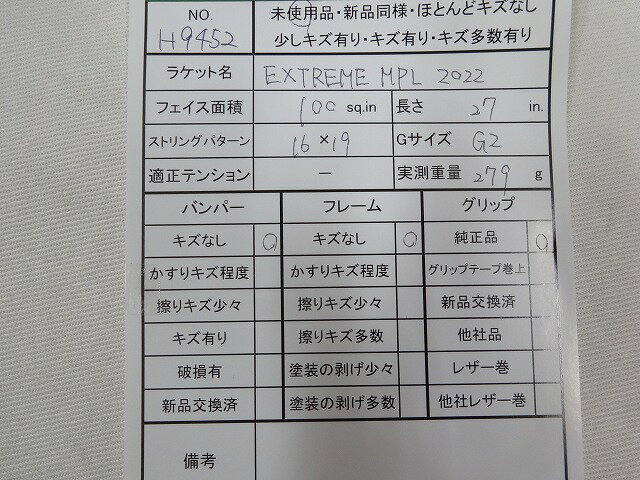 NO. 未使用品・新品同様・ほとんどキズなし
H9452 少しキズ有り・キズ有り・キズ多数有り
ラケット名 EXTREME MPL 2022
フェイス面積 100 sq.in 長さ 27 in.
ストリングパターン 16×19 Gサイズ G2
適正テンション − 実測重量 279 g
バンパー フレーム グリップ
キズなし ○ キズなし ○ 純正品 ○
かすりキズ程度 かすりキズ程度 グリップテープ巻上
擦りキズ少々 擦りキズ少々 新品交換済
キズ有り 擦りキズ多数 他社品
破損有 塗装の剥げ少々 レザー巻
新品交換済 塗装の剥げ多数 他社レザー巻
備考